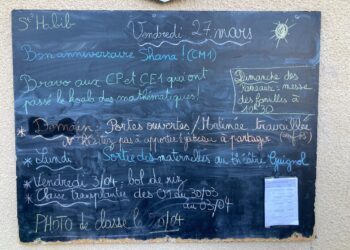 St Habib
Vendredi 27 mars
Bon anniversaire Shana ! (CM1)
Bravo aux CP et CE1 qui ont
passé le koala des mathématiques !
Dimanche des
Rameaux : messe
des familles à
10h30
* Demain : Portes ouvertes / Matinée travaillée
N'hésitez pas à apporter 1 gâteau à partager
* Lundi Sortie des maternelles au théâtre Guignol
* Vendredi 3/04 bol de riz
* Classe transplantée des CM du 30/03
au 03/04
PHOTO de classe le /04